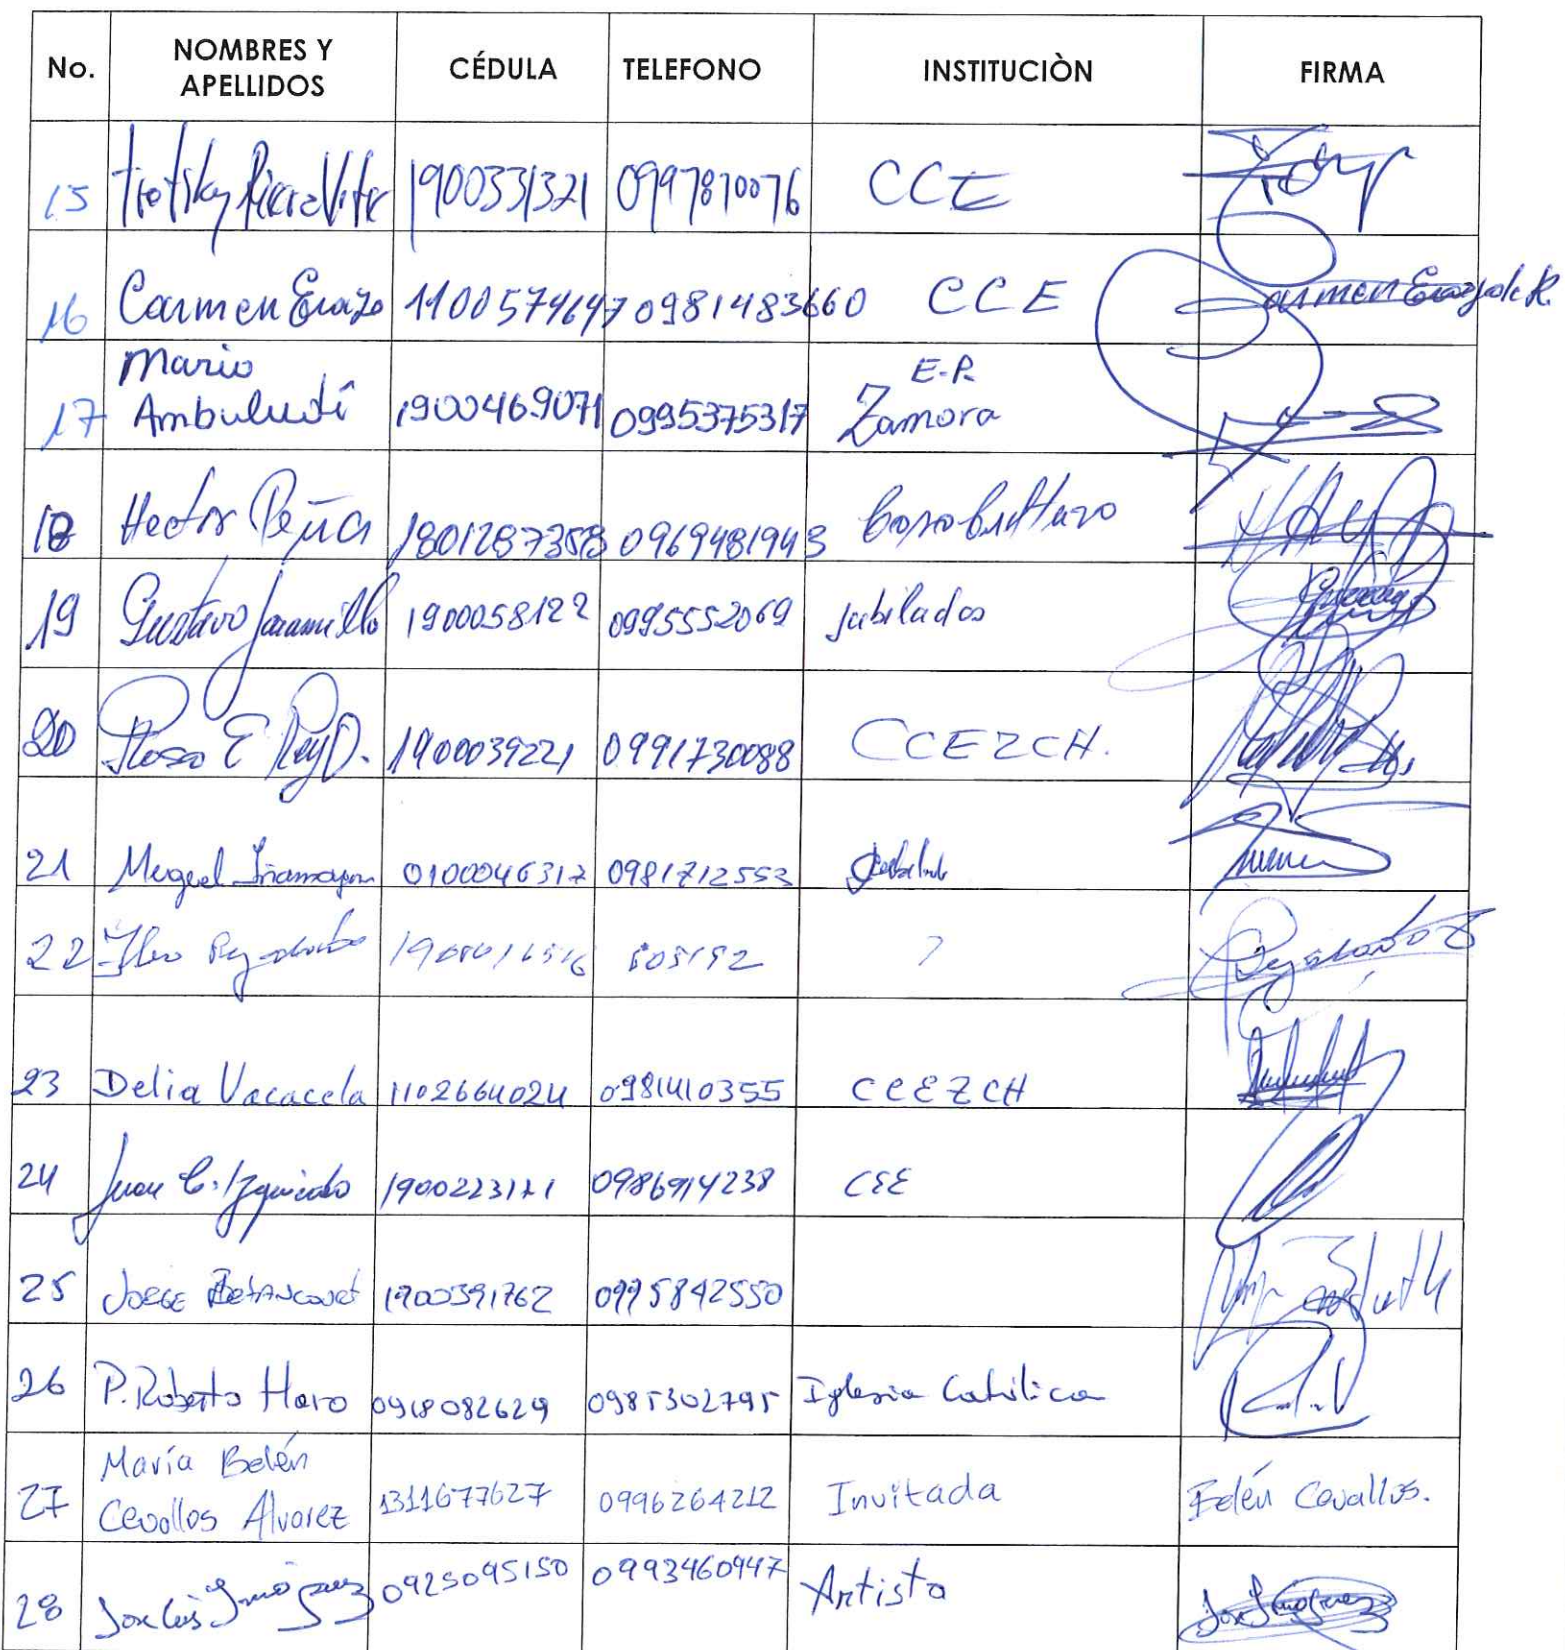 No. NOMBRES Y APELLIDOS CÉDULA TELEFONO INSTITUCIÒN FIRMA
15 Trotsky Riera Vite 1900331321 0997870076 CCE
16 Carmen Erazo 1100574647 0981483660 CCE Carmen Erazo de R.
17 Mario Ambuludí 1900469071 0995375317 E.P. Zamora
18 Hector Peña 0969481943
19 Gustavo Jaramillo 1900058122 0995552069 jubilados
20 Rosa E Rey O. 1900039221 0991730088 CCEZCH.
21 0100046317 0981712553
22
23 Delia Vacacela 1102664024 0981410355 CCEZCH
24 Juan C. Izquierdo 0986914238 CCE
25 Jorge Betancourt 1900391762 0995842550
26 P. Roberto Haro 0918082629 0985302795 Iglesia Católica
27 María Belén Cevallos Alvarez 1311677627 0996264212 Invitada Belén Cevallos.
28 José Luis 0925095150 0993460947 Artista